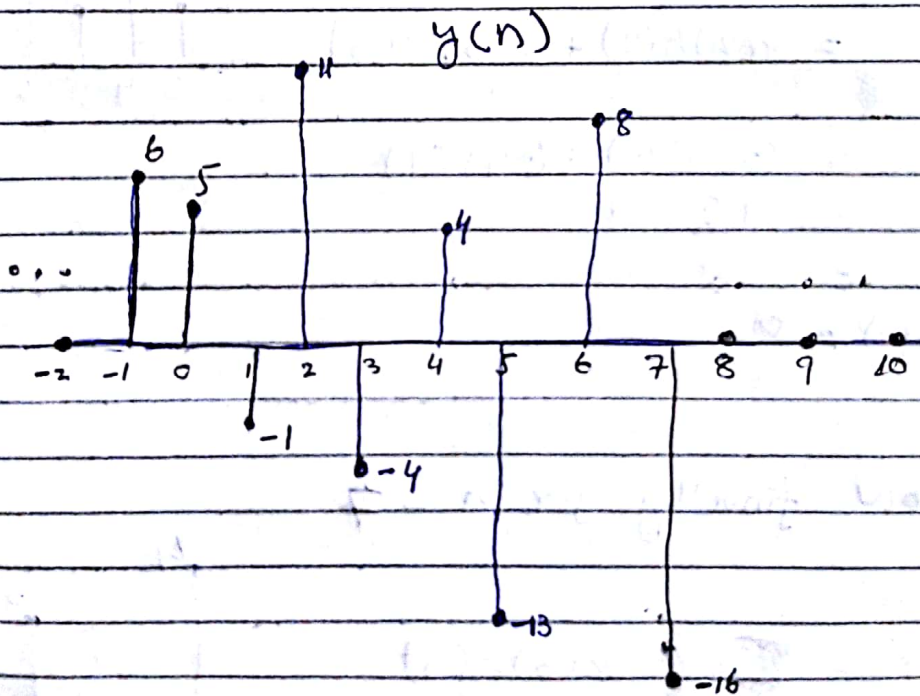 y(n)
11
8
6
5
4
-2 -1 0 1 2 3 4 5 6 7 8 9 10
-1
-4
-13
-16